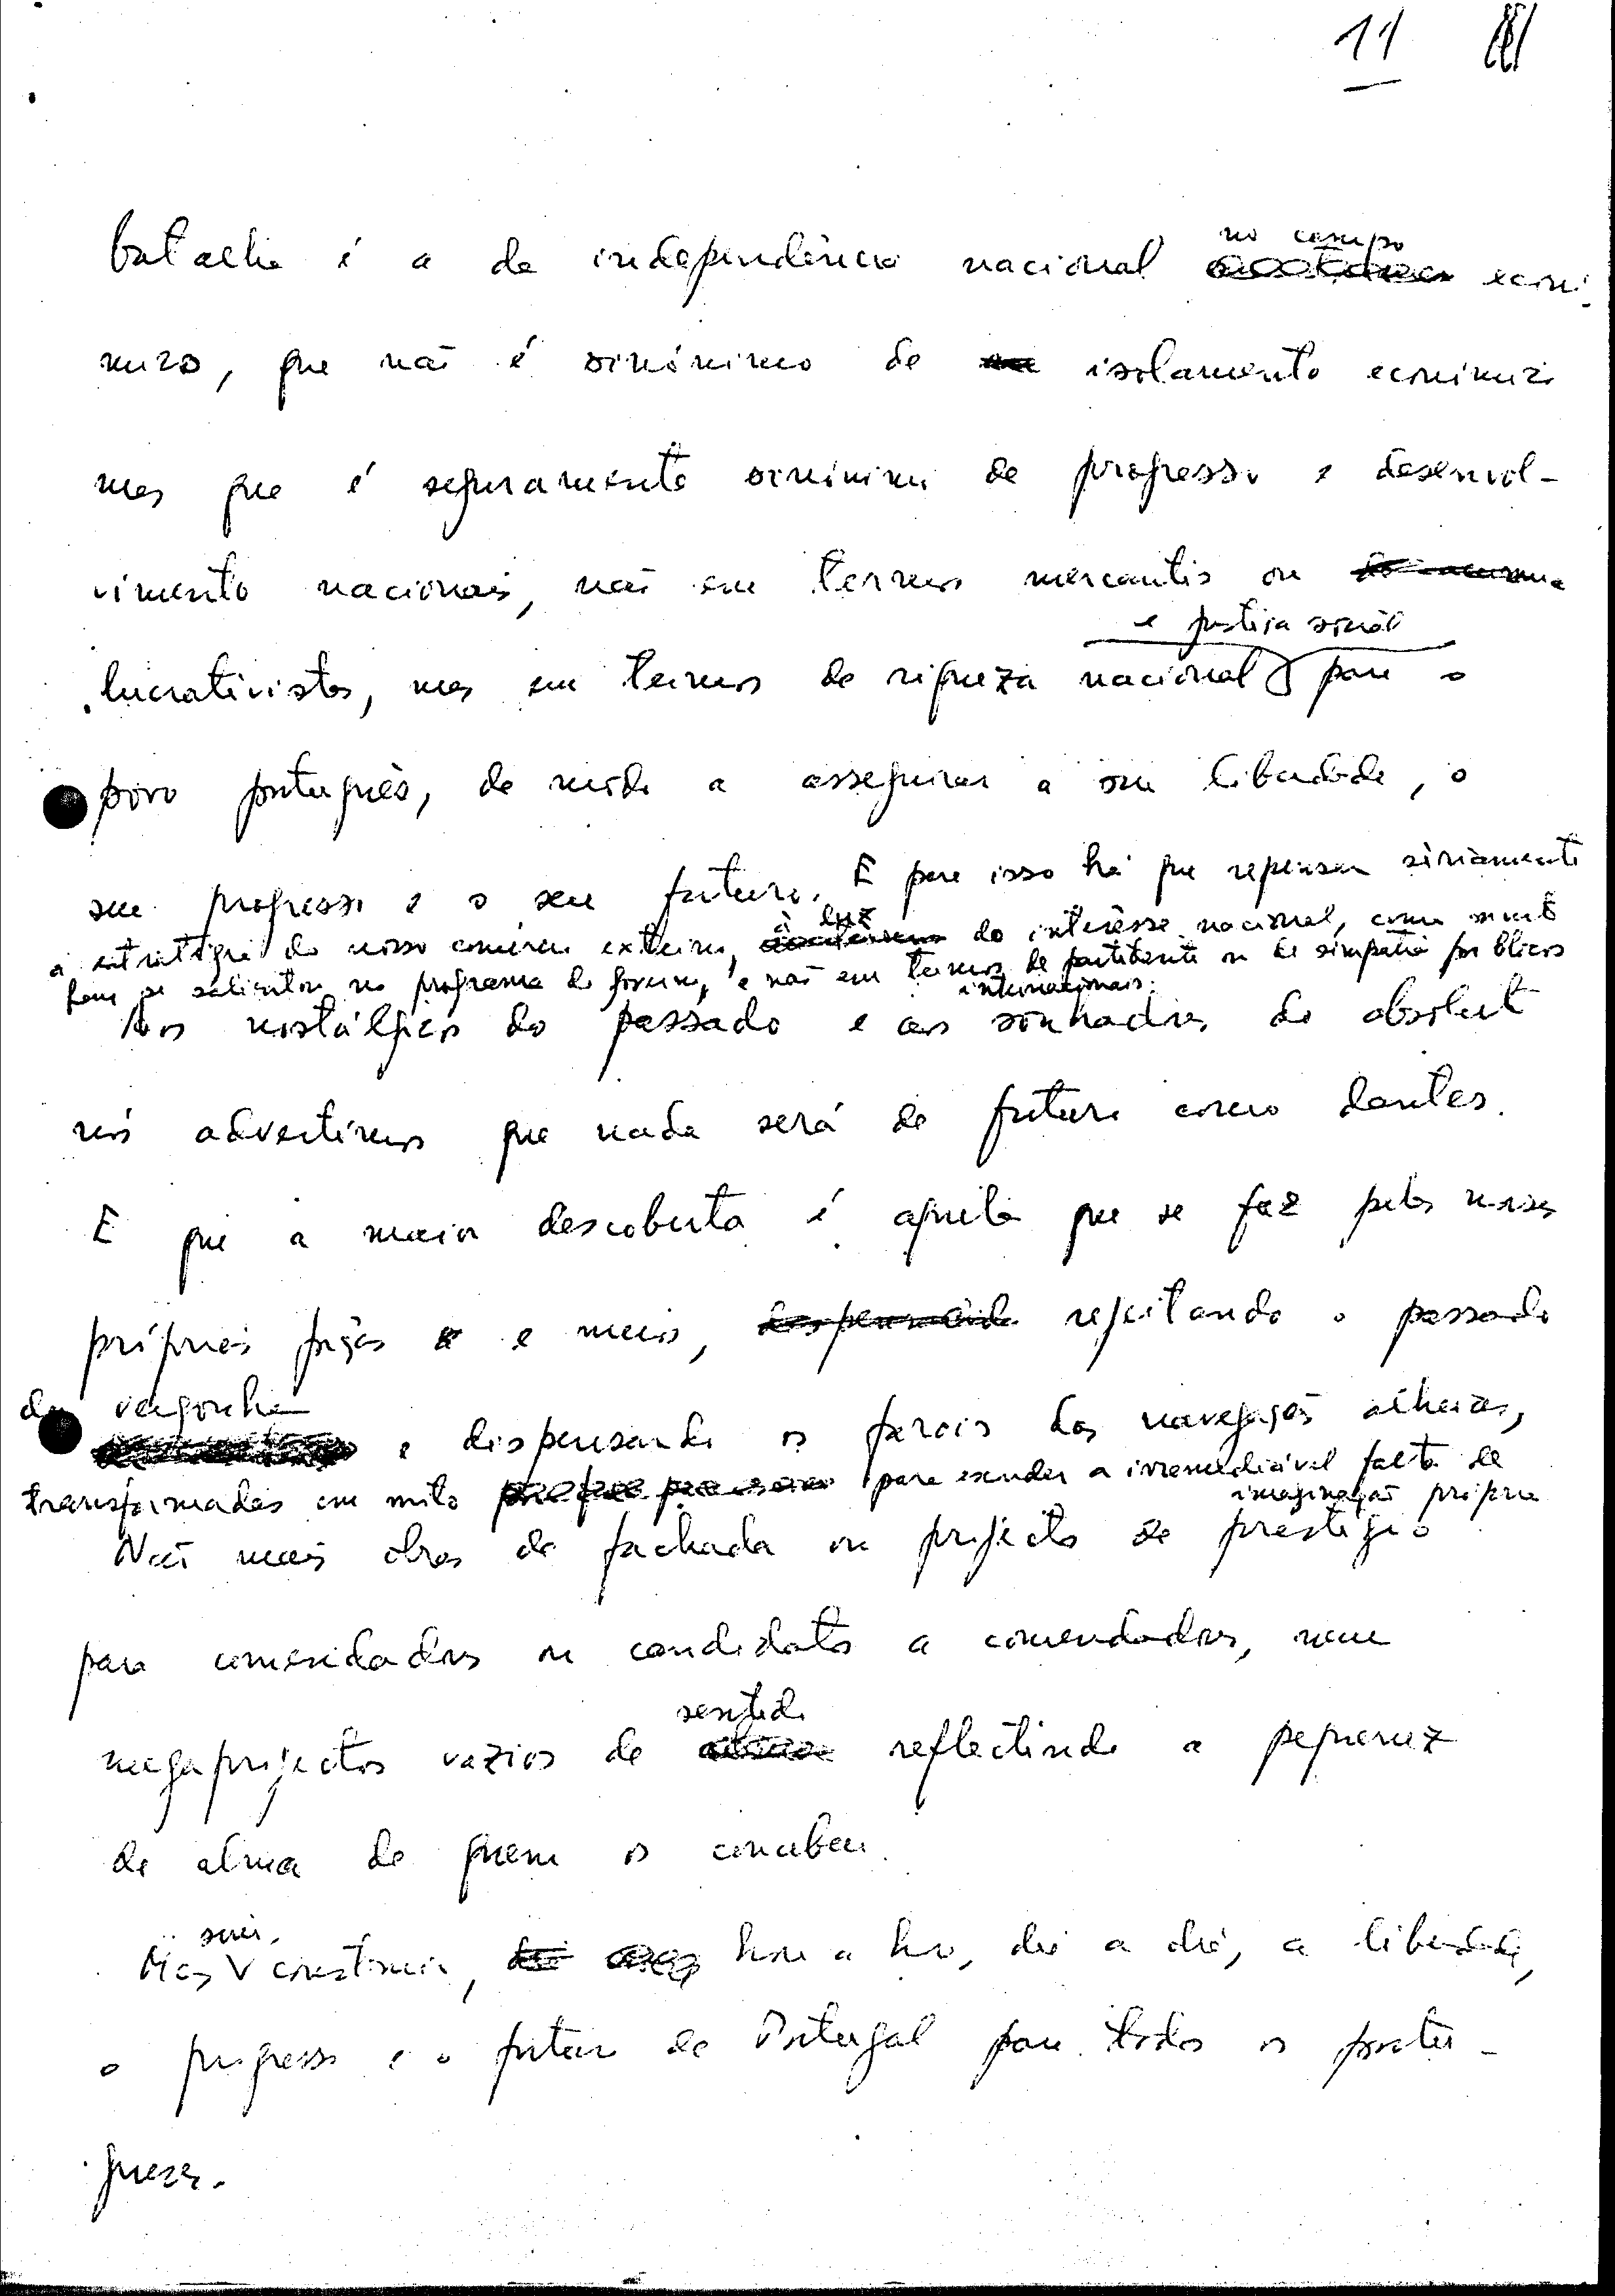 11
batalha é a da independência nacional no campo econó-
mico, que não é sinónimo de isolamento económico
mas que é seguramente sinónimo de progresso e desenvol-
vimento nacionais, não em termos mercantis ou
lucrativistas, mas em termos de riqueza nacional e justiça social para o
povo português, de modo a assegurar a sua liberdade, o
seu progresso e o seu futuro. E para isso há que repensar sèriamente
a estratégia do nosso comércio externo, à luz do interesse nacional, como muito
bem se salientou no programa do governo, e não em termos de partidarite ou de simpatia por blocos
internacionais.
Aos nostálgicos do passado e aos sonhadores do absoluto
nós advertimos que nada será de futuro como dantes.
E que a maior descoberta é aquela que se faz pelas nossas
próprias forças e meios, rejeitando o passado
da vergonha e dispensando os faróis das navegações alheias,
transformadas em mito para esconder a irremediável falta de
imaginação própria
Não mais obras de fachada ou projectos de prestígio
para comendadores ou candidatos a comendadores, nem
megaprojectos vazios de sentido reflectindo a pequenez
de alma de quem os concebeu.
Mas sim, construir, hora a hora, dia a dia, a liberdade,
o progresso e o futuro de Portugal para todos os portu-
gueses.